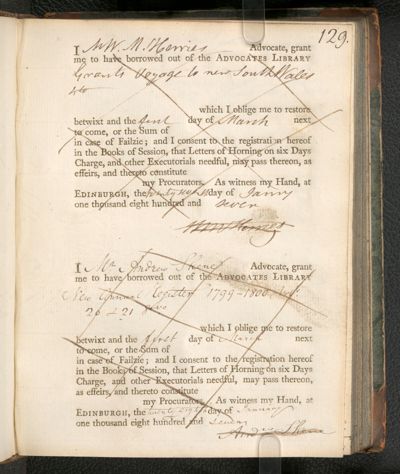 129.
I Mr W. M. Herries Advocate, grant
me to have borrowed out of the ADVOCATES LIBRARY
Grants Voyage to new South Wales
4to
which I oblige me to restore
betwixt and the first day of March next
to come, or the Sum of
in case of Failzie; and I consent to the registration hereof
in the Books of Session, that Letters of Horning on six Days
Charge, and other Executorials needful, may pass thereon, as
effeirs, and thereto constitute
my Procurators. As witness my Hand, at
EDINBURGH, the day of Janry
one thousand eight hundred and seven
I Mr Andrew Advocate, grant
me to have borrowed out of the ADVOCATES LIBRARY
New Annual Register 1799-1800
20 21
which I oblige me to restore
betwixt and the first day of March next
to come, or the Sum of
in case of Failzie; and I consent to the registration hereof
in the Books of Session, that Letters of Horning on six Days
Charge, and other Executorials needful, may pass thereon,
as effeirs, and thereto constitute
my Procurators. As witness my Hand, at
EDINBURGH, the twenty eighth day of January
one thousand eight hundred and seven
Andrew